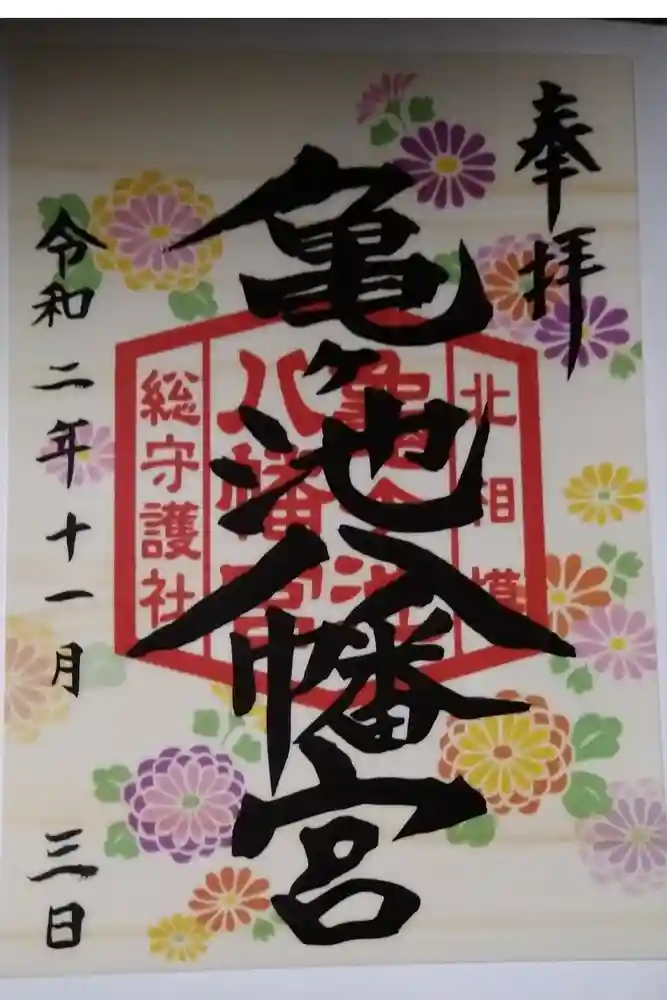 奉拝
亀ヶ池八幡宮
北相模
亀ヶ池
八幡宮
総守護社
令和二年十一月三日